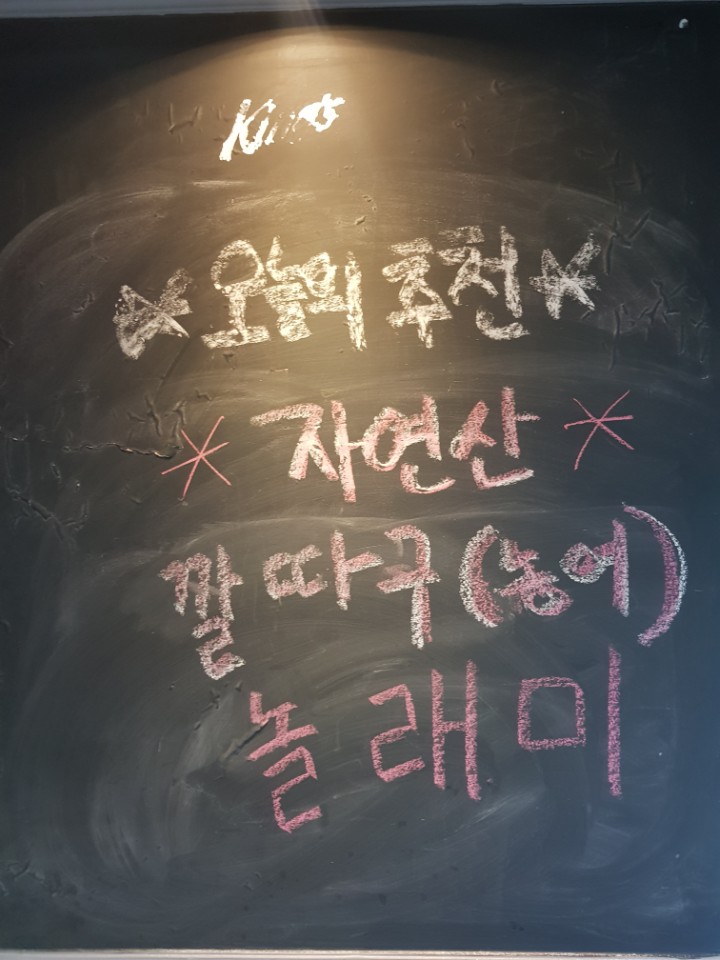 ☆ 오늘의 추천 ☆
* 자연산 *
깔따구(농어)
놀래미